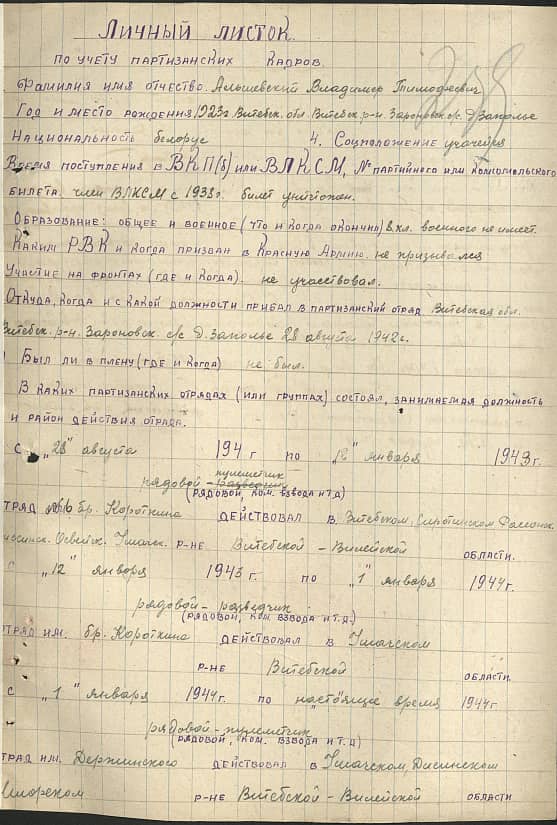 Личный листок
по учету партизанских кадров.
Фамилия имя отчество. Альшевский Владимир Тимофеевич
Год и место рождения 1923г. Витебск. обл. Витебск. р-н Зароновск. с/с Д. Заполье
Национальность белорус 4. Соцположение учащийся
Время поступления в ВКП(б) или ВЛКСМ, № партийного или комсомольского
билета. член ВЛКСМ с 1938г. билет уничтожен.
Образование: общее и военное (что и когда окончил) 8 кл. военного не имеет.
Каким РВК и когда призван в Красную Армию. не призывался
Участие на фронтах (где и когда). не участвовал.
Откуда, когда и с какой должности прибыл в партизанский отряд Витебская обл.
Витебск. р-н. Зароновск. с/с Д. Заполье 28 августа 1942г.
Был ли в плену (где и когда) не был.
В каких партизанских отрядах (или группах) состоял, занимаемая должность
и район действия отряда.
с "28" августа 194 г по "12" января 1943г.
пулеметчик
рядовой - разведчик
(рядовой, ком. взвода и т.д)
отряд №16 бр. Короткина действовал в Витебском, Сиротинском
Освейск. Ушачск. р-не Витебской - Вилейской области.
с "12" января 1943 г. по "1" января 1944г.
рядовой - разведчик
(рядовой, ком. взвода и т.д.)
отряд им. бр. Короткина действовал в Ушачском
р-не Витебской области.
с "1" января 1944г. по настоящее время 1944г
рядовой - пулеметчик
(рядовой, ком. взвода и т.д)
отряд им. Держинского действовал в Ушачском, Дисненском
р-не Витебской - Вилейской области